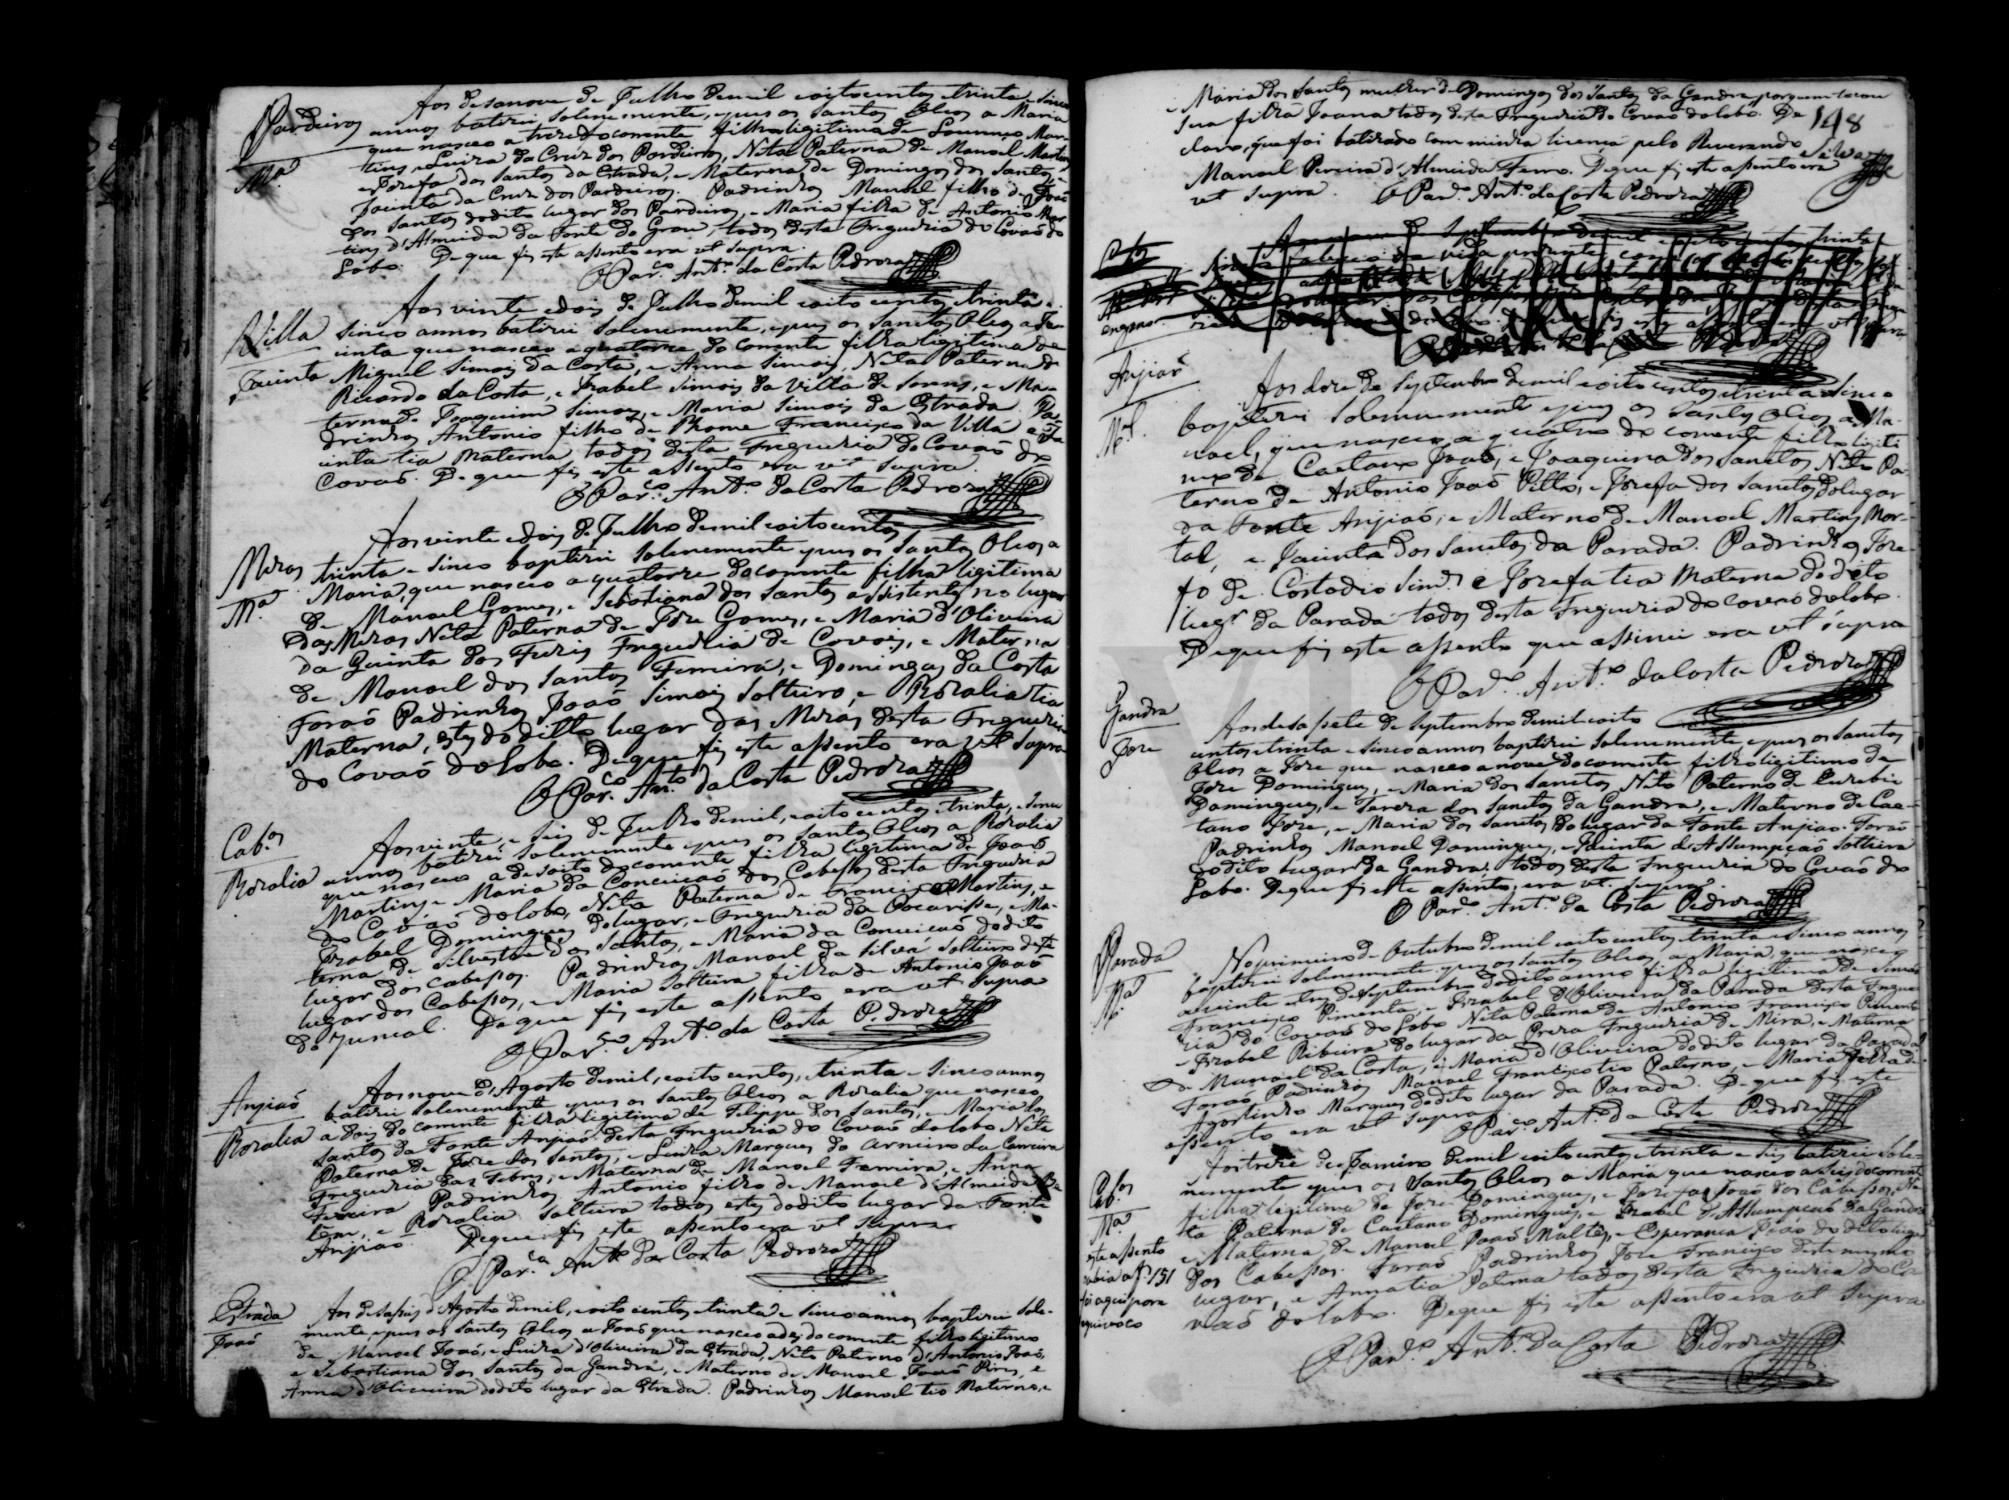 Aos desanove de Julho de mil e oito centos e trinta e sinco
Pardeiros annos batizei solenemente, e pus os Santos Oleos a Maria
que nasceo a treze do corrente filha ligitima de Lourenço Mar-
Mª tins e Luiza da Cruz dos Pardeiros, Nita Paterna de Manoel Martins
e Jozefa dos Santos da Estrada, e Materna de Domingos dos Santos
Jacinta da Cruz dos Pardeiros. Padrinhos Manoel filho de João
dos Santos do dito lugar dos Pardeiros, e Maria filha de Antonio Mar
tins d'Almeida da Fonte do Grou, todos desta Freguezia do Covaõ do
Lobo. De que fis este assento era ut supra.
O Par.º Ant.º da Costa Pedroza
Aos vinte e dois de Julho de mil e oito centos e trinta e
Villa sinco annos batizei solenemente, e pus os Santos Oleos a Ja-
cinta que nasceo a quatorze do corrente filha legitima de
Jacinta Miguel Simois da Costa, e Anna Simois, Nita Paterna de
Ricardo da Costa, e Izabel Simois da Villa de Sorens, e Ma-
terna de Joaquim Simois, e Maria Simois da Estrada. Pa-
drinhos Antonio filho de Francisco da Villa e Ja
cinta tia Materna todos desta Freguezia do Covaõ do
Covaõ. De que fis este assento era ut supra.
O Par.º Ant.º da Costa Pedroza
Aos vinte e dois de Julho de mil e oito centos
Miras trinta e sinco baptizei solenemente e pus os Santos Oleos a
Mª Maria, que nasceo a quatorze do corrente filha ligitima
de Manoel Gomes, e Sebastiana dos Santos assistentes no lugar
das Miras Nita Paterna de Joze Gomes, e Maria d'Oliveira
da Quinta dos Freguezia de Covois, e Materna
de Manoel dos Santos Ferreira, e Domingas da Costa
Foraõ Padrinhos João Simois solteiro, e Rozalia tia
Materna, estes do ditto lugar das Miras desta Freguezia
do Covaõ do Lobo. De que fis este assento era ut supra
O Par.º An.to da Costa Pedroza
Cab.os Aos vinte, e seis de Julho de mil, e oito centos, trinta, e sinco
annos batizei solenemente e pus os Santos Oleos a Rozalia
Rozalia que nasceo a desoito do corrente filha legitima de João
Martins e Maria da Conceicaõ dos Cabessos desta Freguezia
do Covaõ do Lobo, Nita Paterna de Francisco Martins, e
Izabel Domingues do lugar, e Freguezia da Pocarissa, e Ma-
terna de Silvestre dos Santos, e Maria da Conceicaõ do dito
lugar dos Cabessos. Padrinhos Manoel da Silva solteiro deste
lugar dos Cabessos, e Maria solteira filha de Antonio João
do Juncal. De que fis este assento era ut supra
O Par.º Ant.º da Costa Pedroza
Aos nove d'Agosto de mil, e oito centos, e trinta e sinco annos
Anjiaõ batizei solenemente e pus os Santos Oleos a Rozalia que nasceo
Rozalia a dois do corrente filha legitima de Filippe dos Santos, e Maria dos
Santos da Fonte Anjiaõ desta Freguezia do Covaõ do Lobo Nita
Paterna de Joze dos Santos, e Luiza Marques do Arneiro da Conceira
Freguezia das Febres, e Materna de Manoel Ferreira, e Anna
Ferreira Padrinhos Antonio filho de Manoel d'Almeida
e Rozalia solteira todos estes do dito lugar da Fonte
Anjiaõ. De que fis este assento era ut supra
O Par.º Ant.º da Costa Pedroza
Estrada Aos desaseis d'Agosto de mil, e oito centos, e trinta e sinco annos baptizei sole-
Joaõ mente e pus os Santos Oleos a Joaõ que nasceo a dez do corrente filho legitimo
de Manoel Joaõ, e Luiza d'Oliveira da Estrada, Nito Paterno d'Antonio Joaõ,
e Sebastiana dos Santos da Gandra, e Materno de Manoel Joaõ Pires, e
Anna d'Oliveira do dito lugar da Estrada. Padrinhos Manoel tio Materno, e
e Maria dos Santos mulher de Domingos dos Santos da Gandra por quem tocou
sua filha Joana todos desta Freguezia do Covaõ do Lobo. De
148
claro, que foi batizado com minha licença pelo Reverendo
Silva
Manoel Pereira d'Almeida Ferro. De que fis este assento era
ut supra. O Par.º Ant.º da Costa Pedroza
Septembro de mil e oito centos e trinta
faleceo da vida prezente
engano
Anjiaõ
Aos doze de Septembro de mil e oito centos e trinta e sinco
Mel. baptizei solemnemente e pus os Santos Oleos a Ma-
noel, que nasceo a quatro do corrente filho ligiti
mo de Caetano Joaõ, e Joaquina dos Sanctos, Nito Pa-
terno de Antonio Joaõ Petto, e Jozefa dos Sanctos do lugar
da Fonte Anjiaõ, e Materno de Manoel Martins Mor-
tal, e Jacinta dos Sanctos da Parada. Padrinhos Joze
fo de Costodio Sim.s e Jozefa tia Materna do dito
lugr da Parada todos desta Freguezia do Covaõ do Lobo.
De que fis este assento que assinei era ut supra
O Par.º Ant.º da Costa Pedroza
Gandra Aos desasete de Septembro de mil e oito
Joze centos e trinta e sinco annos baptizei solenemente e pus os Sanctos
Oleos a Joze que nasceo a nove do corrente filho legitimo de
Joze Domingues, e Maria dos Sanctos, Nito Paterno de Euzebio
Domingues, e Tereza dos Sanctos da Gandra, e Materno de Cae-
tano Joze, e Maria dos Sanctos do lugar da Fonte Anjiaõ. Foraõ
Padrinhos Manoel Domingues, e Jacinta d'Assumpçaõ solteira
do dito lugar da Gandra, todos desta Freguezia do Covaõ do
Lobo. De que fis este assento, era ut supra.
O Par.º Ant.º da Costa Pedroza
Parada No primeiro de Outubro de mil e oito centos e trinta e sinco annos
baptizei solenemente e pus os Santos Oleos, a Maria, que nasceo
Mª a vinte e tres de Septembro do dito anno filha legitima de Simaõ
Francisco Pimentel, e Izabel d'Oliveira da Parada desta Fregue
zia do Covaõ do Lobo Nita Paterna de Antonio Francisco Pimentel
e Izabel Ribeira do lugar da Preza Freguezia de Mira, e Materna
de Manoel da Costa, e Maria d'Oliveira do dito lugar da Parada
Foraõ Padrinhos Manoel Francisco tio Paterno, e Maria filha de
Agostinho Marques do dito lugar da Parada. De que fis este
assento era ut supra O Par.º Ant.º da Costa Pedroza
Aos treze de Janeiro de mil e oito centos e trinta e seis batizei sole-
Cab.os nemente e pus os Santos Oleos a Maria que nasceo a seis do corrente
Mª filha legitima de Joze Domingues, e Jozefa Joaõ dos Cabessos, Ni
ta Paterna de Caetano Domingues, e Izabel d'Assumpçaõ da Gandra
este assento e Materna de Manoel Joaõ Malta, e Esperança Joaõ do dito lugar
cabia a f. 151 dos Cabessos. Foraõ Padrinhos Joze Francisco deste mesmo
foi aqui por lugar, e Anna tia Paterna todos desta Freguezia do Co-
equivoco vaõ do Lobo. De que fis este assento era ut supra
O Par.º Ant.º da Costa Pedroza